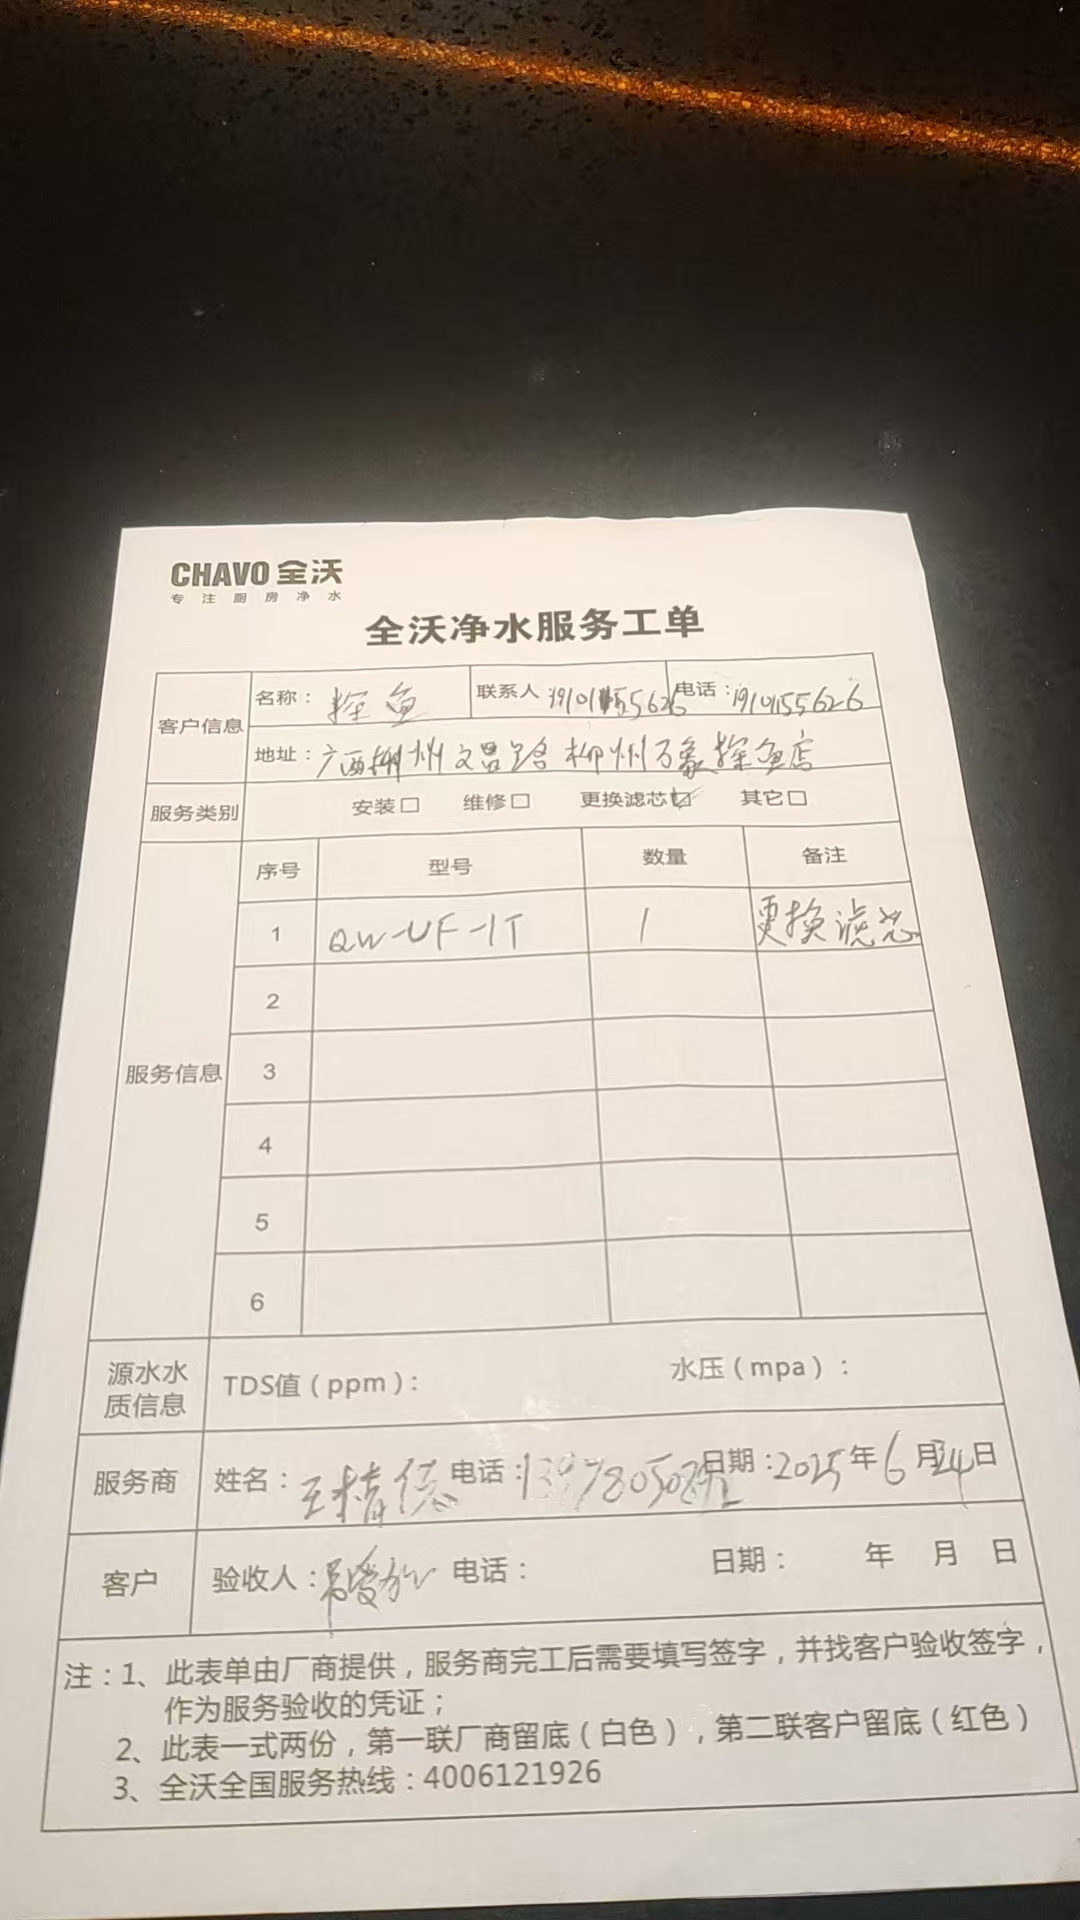 CHAVO 全沃
专注厨房净水
全沃净水服务工单
客户信息 名称：探鱼 联系人 电话：19101155626
地址：广西柳州文昌路柳州万象探鱼店
服务类别 安装□ 维修□ 更换滤芯☑ 其它□
服务信息 序号 型号 数量 备注
1 QW-UF-1T 1 更换滤芯
2
3
4
5
6
源水水质信息 TDS值（ppm）： 水压（mpa）：
服务商 姓名：王精德 电话： 日期：2025年6月24日
客户 验收人： 电话： 日期： 年 月 日
注：1、此表单由厂商提供，服务商完工后需要填写签字，并找客户验收签字，
作为服务验收的凭证；
2、此表一式两份，第一联厂商留底（白色），第二联客户留底（红色）
3、全沃全国服务热线：4006121926